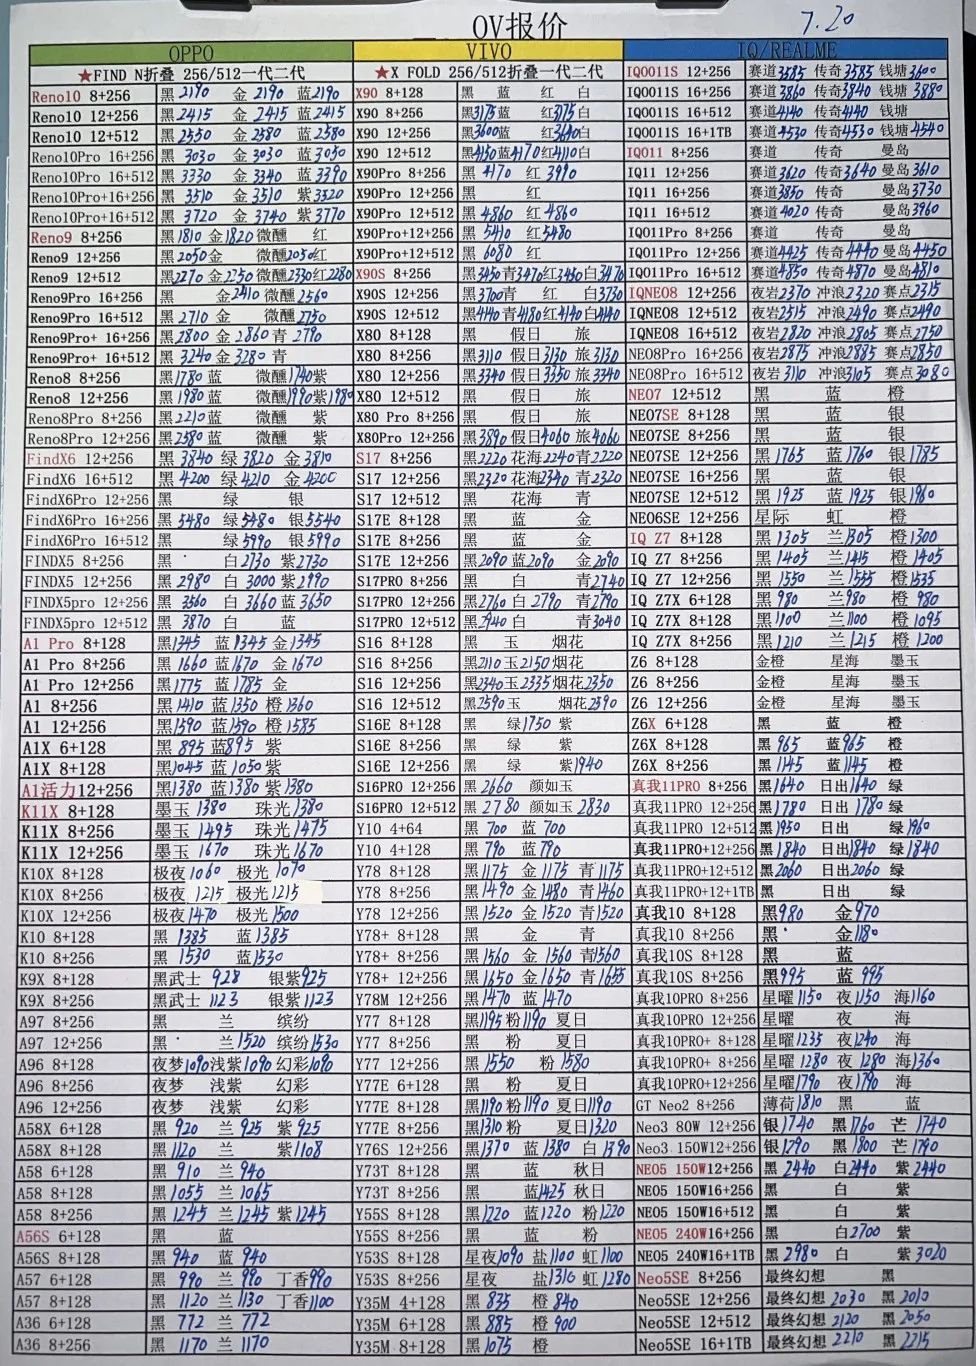 OV报价
7.20
OPPO
★FIND N折叠 256/512一代二代
Reno10 8+256 黑2190 金2190 蓝2190
Reno10 12+256 黑2415 金2415 蓝2415
Reno10 12+512 黑2530 金2580 蓝2580
Reno10Pro 16+256 黑3030 金3030 蓝3050
Reno10Pro 16+512 黑3330 金3340 蓝3390
Reno10Pro+16+256 黑3510 金3510 紫3520
Reno10Pro+16+512 黑3720 金3740 紫3770
Reno9 8+256 黑1810 金1820 微醺 红
Reno9 12+256 黑2050 金 微醺2050 红
Reno9 12+512 黑2270 金2250 微醺2330 红2280
Reno9Pro 16+256 黑 金2410 微醺2560
Reno9Pro 16+512 黑2710 金 微醺2750
Reno9Pro+ 16+256 黑2800 金2860 青2790
Reno9Pro+ 16+512 黑3240 金3280 青
Reno8 8+256 黑1780 蓝 微醺1740 紫
Reno8 12+256 黑1980 蓝 微醺1990 紫1980
Reno8Pro 8+256 黑2210 蓝 微醺 紫
Reno8Pro 12+256 黑2580 蓝 微醺 紫
FindX6 12+256 黑3840 绿3820 金3810
FindX6 16+512 黑4200 绿4210 金4200
FindX6Pro 12+256 黑 绿 银
FindX6Pro 16+256 黑5480 绿5480 银5540
FindX6Pro 16+512 黑 绿5990 银5990
FINDX5 8+256 黑 白2730 紫2730
FINDX5 12+256 黑2980 白3000 紫2990
FINDX5pro 12+256 黑3560 白3660 蓝3650
FINDX5pro 12+512 黑3870 白 蓝
A1 Pro 8+128 黑1345 蓝1345 金1345
A1 Pro 8+256 黑1660 蓝1670 金1670
A1 Pro 12+256 黑1775 蓝1785 金
A1 8+256 黑1410 蓝1350 橙1360
A1 12+256 黑1590 蓝1590 橙1585
A1X 6+128 黑895 蓝895 紫
A1X 8+128 黑1045 蓝1050 紫
A1活力12+256 黑1380 蓝1380 紫1380
K11X 8+128 墨玉1380 珠光1380
K11X 8+256 墨玉1495 珠光1475
K11X 12+256 墨玉1670 珠光1670
K10X 8+128 极夜1060 极光1070
K10X 8+256 极夜1215 极光1215
K10X 12+256 极夜1470 极光1500
K10 8+128 黑1385 蓝1385
K10 8+256 黑1530 蓝1530
K9X 8+128 黑武士928 银紫925
K9X 8+256 黑武士1123 银紫1123
A97 8+256 黑 兰 缤纷
A97 12+256 黑 兰1520 缤纷1530
A96 8+128 夜梦1090 浅紫1090 幻彩1090
A96 8+256 夜梦 浅紫 幻彩
A96 12+256 夜梦 浅紫 幻彩
A58X 6+128 黑920 兰925 紫925
A58X 8+128 黑1120 兰 紫1108
A58 6+128 黑910 兰940
A58 8+128 黑1055 兰1065
A58 8+256 黑1245 兰1245 紫1245
A56S 6+128 黑 蓝
A56S 8+128 黑940 蓝940
A57 6+128 黑990 兰990 丁香990
A57 8+128 黑1120 兰1130 丁香1100
A36 6+128 黑772 兰772
A36 8+256 黑1170 兰1170
VIVO
★X FOLD 256/512折叠一代二代
X90 8+128 黑 蓝 红 白
X90 8+256 黑3175 蓝 红3175 白
X90 12+256 黑3600 蓝 红3640 白
X90 12+512 黑4130 蓝4170 红4110 白
X90Pro 8+256 黑4170 红3990
X90Pro 12+256 黑 红
X90Pro 12+512 黑4860 红4860
X90Pro+12+256 黑5410 红5480
X90Pro+12+512 黑6080 红
X90S 8+256 黑3450 青3470 红3450 白3470
X90S 12+256 黑3700 青 红 白3730
X90S 12+512 黑4140 青4180 红4140 白4140
X80 8+128 黑 假日 旅
X80 8+256 黑3110 假日3130 旅3130
X80 12+256 黑3340 假日3350 旅3340
X80 12+512 黑 假日 旅
X80 Pro 8+256 黑 假日 旅
X80Pro 12+256 黑3890 假日4060 旅4060
S17 8+256 黑2220 花海2240 青2220
S17 12+256 黑2320 花海2340 青2320
S17 12+512 黑 花海 青
S17E 8+128 黑 蓝 金
S17E 8+256 黑 蓝 金
S17E 12+256 黑2090 蓝2090 金2090
S17PRO 8+256 黑 白 青2740
S17PRO 12+256 黑2760 白2790 青2790
S17PRO 12+512 黑2940 白 青3040
S16 8+128 黑 玉 烟花
S16 8+256 黑2110 玉2150 烟花
S16 12+256 黑2340 玉2335 烟花2350
S16 12+512 黑2590 玉 烟花2590
S16E 8+128 黑 绿1750 紫
S16E 8+256 黑 绿 紫
S16E 12+256 黑 绿 紫1940
S16PRO 12+256 黑2660 颜如玉
S16PRO 12+512 黑2780 颜如玉2830
Y10 4+64 黑700 蓝700
Y10 4+128 黑790 蓝790
Y78 8+128 黑1175 金1175 青1175
Y78 8+256 黑1490 金1480 青1460
Y78 12+256 黑1520 金1520 青1520
Y78+ 8+128 黑 金 青
Y78+ 8+256 黑1560 金1560 青1560
Y78+ 12+256 黑1650 金1650 青1655
Y78M 12+256 黑1470 蓝1470
Y77 8+128 黑1195 粉1190 夏日
Y77 8+256 黑 粉 夏日
Y77 12+256 黑1550 粉1580
Y77E 6+128 黑 粉 夏日
Y77E 8+128 黑1190 粉1190 夏日1190
Y77E 8+256 黑1310 粉 夏日1320
Y76S 12+256 黑1370 蓝1380 白1390
Y73T 8+128 黑 蓝 秋日
Y73T 8+256 黑 蓝1425 秋日
Y55S 8+128 黑1220 蓝1220 粉1220
Y55S 8+256 黑 蓝 粉
Y53S 8+128 星夜1090 盐1100 虹1100
Y53S 8+256 星夜 盐1310 虹1280
Y35M 4+128 黑835 橙840
Y35M 6+128 黑885 橙900
Y35M 8+128 黑1075 橙
IQ/REALME
IQOO11S 12+256 赛道3585 传奇3585 钱塘3600
IQOO11S 16+256 赛道3860 传奇3840 钱塘3880
IQOO11S 16+512 赛道4140 传奇4140 钱塘
IQOO11S 16+1TB 赛道4530 传奇4530 钱塘4540
IQO11 8+256 赛道 传奇 曼岛
IQ11 12+256 赛道3620 传奇3640 曼岛3610
IQ11 16+256 赛道3850 传奇 曼岛3730
IQ11 16+512 赛道4020 传奇 曼岛3960
IQO11Pro 8+256 赛道 传奇 曼岛
IQO11Pro 12+256 赛道4425 传奇4440 曼岛4450
IQO11Pro 16+512 赛道4850 传奇4870 曼岛4810
IQNEO8 12+256 夜岩2370 冲浪2320 赛点2315
IQNEO8 12+512 夜岩2515 冲浪2490 赛点2490
IQNEO8 16+512 夜岩2820 冲浪2805 赛点2750
NEO8Pro 16+256 夜岩2875 冲浪2885 赛点2850
NEO8Pro 16+512 夜岩3110 冲浪3105 赛点3080
NEO7 12+512 黑 蓝 橙
NEO7SE 8+128 黑 蓝 银
NEO7SE 8+256 黑 蓝 银
NEO7SE 12+256 黑1765 蓝1760 银1785
NEO7SE 16+256 黑 蓝 银
NEO7SE 12+512 黑1925 蓝1925 银1960
NEO6SE 12+256 星际 虹 橙
IQ Z7 8+128 黑1305 兰1305 橙1300
IQ Z7 8+256 黑1405 兰1415 橙1405
IQ Z7 12+256 黑1550 兰1555 橙1535
IQ Z7X 6+128 黑980 兰980 橙980
IQ Z7X 8+128 黑1100 兰1100 橙1095
IQ Z7X 8+256 黑1210 兰1215 橙1200
Z6 8+128 金橙 星海 墨玉
Z6 8+256 金橙 星海 墨玉
Z6 12+256 金橙 星海 墨玉
Z6X 6+128 黑 蓝 橙
Z6X 8+128 黑965 蓝965 橙
Z6X 8+256 黑1145 蓝1145 橙
真我11PRO 8+256 黑1640 日出1640 绿
真我11PRO 12+256 黑1780 日出1780 绿
真我11PRO 12+512 黑1950 日出 绿1960
真我11PRO+12+256 黑1840 日出1840 绿1840
真我11PRO+12+512 黑2060 日出2060 绿
真我11PRO+12+1TB 黑 日出 绿
真我10 8+128 黑980 金970
真我10 8+256 黑 金1180
真我10S 8+128 黑 蓝
真我10S 8+256 黑995 蓝995
真我10PRO 8+256 星曜1150 夜1150 海1160
真我10PRO 12+256 星曜 夜 海
真我10PRO+ 8+128 星曜1235 夜1240 海
真我10PRO+ 8+256 星曜1280 夜1280 海1360
真我10PRO+12+256 星曜1790 夜1790 海
GT Neo2 8+256 薄荷1810 黑 蓝
Neo3 80W 12+256 银1740 黑1760 芒1740
Neo3 150W12+256 银1790 黑1800 芒1790
NEO5 150W12+256 黑2440 白2440 紫2440
NEO5 150W16+256 黑 白 紫
NEO5 150W16+512 黑 白 紫
NEO5 240W16+256 黑 白2700 紫
NEO5 240W16+1TB 黑2980 白 紫3020
Neo5SE 8+256 最终幻想 黑
Neo5SE 12+256 最终幻想2030 黑2010
Neo5SE 12+512 最终幻想2120 黑2050
Neo5SE 16+1TB 最终幻想2210 黑2215